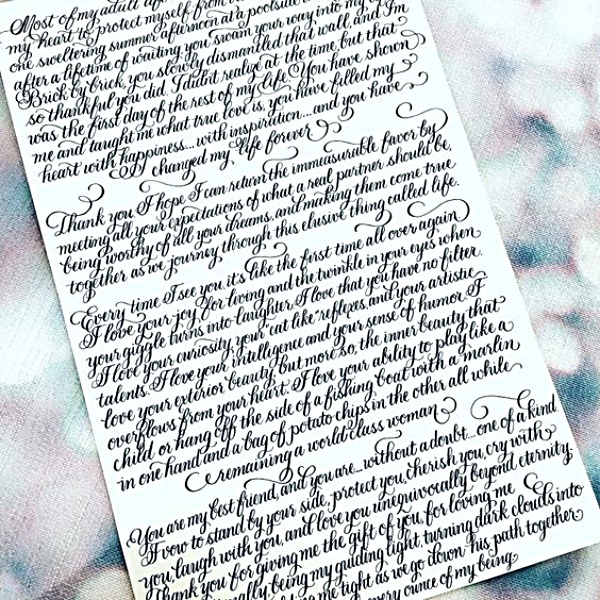 Most of my adult
my heart to protect myself from
one sweltering summer afternoon at a poolside
after a lifetime of waiting you swam your way into my
Brick by brick, you slowly dismantled that wall, and I'm
so thankful you did. I didn't realize at the time, but that
was the first day of the rest of my life. You have shown
me and taught me what true love is, you have filled my
heart with happiness... with inspiration... and you have
changed my life forever
Thank you. I hope I can return the immeasurable favor by
meeting all your expectations of what a real partner should be,
being worthy of all your dreams, and making them come true
together as we journey through this elusive thing called life.
Every time I see you, it's like the first time all over again
I love your joy for living and the twinkle in your eyes when
your giggle turns into laughter. I love that you have no filter.
I love your curiosity, your "cat like" reflexes, and your artistic
talents. I love your intelligence and your sense of humor. I
love your exterior beauty, but more so, the inner beauty that
overflows from your heart. I love your ability to play like a
child or hang off the side of a fishing boat with a marlin
in one hand and a bag of potato chips in the other all while
remaining a world class woman
You are my best friend, and you are... without a doubt... one of a kind
I vow to stand by your side, protect you, cherish you, cry with
you, laugh with you, and love you unequivocally beyond eternity.
Thank you for giving me the gift of you, for loving me
being my guiding light, turning dark clouds into
me tight as we go down this path together
every ounce of my being